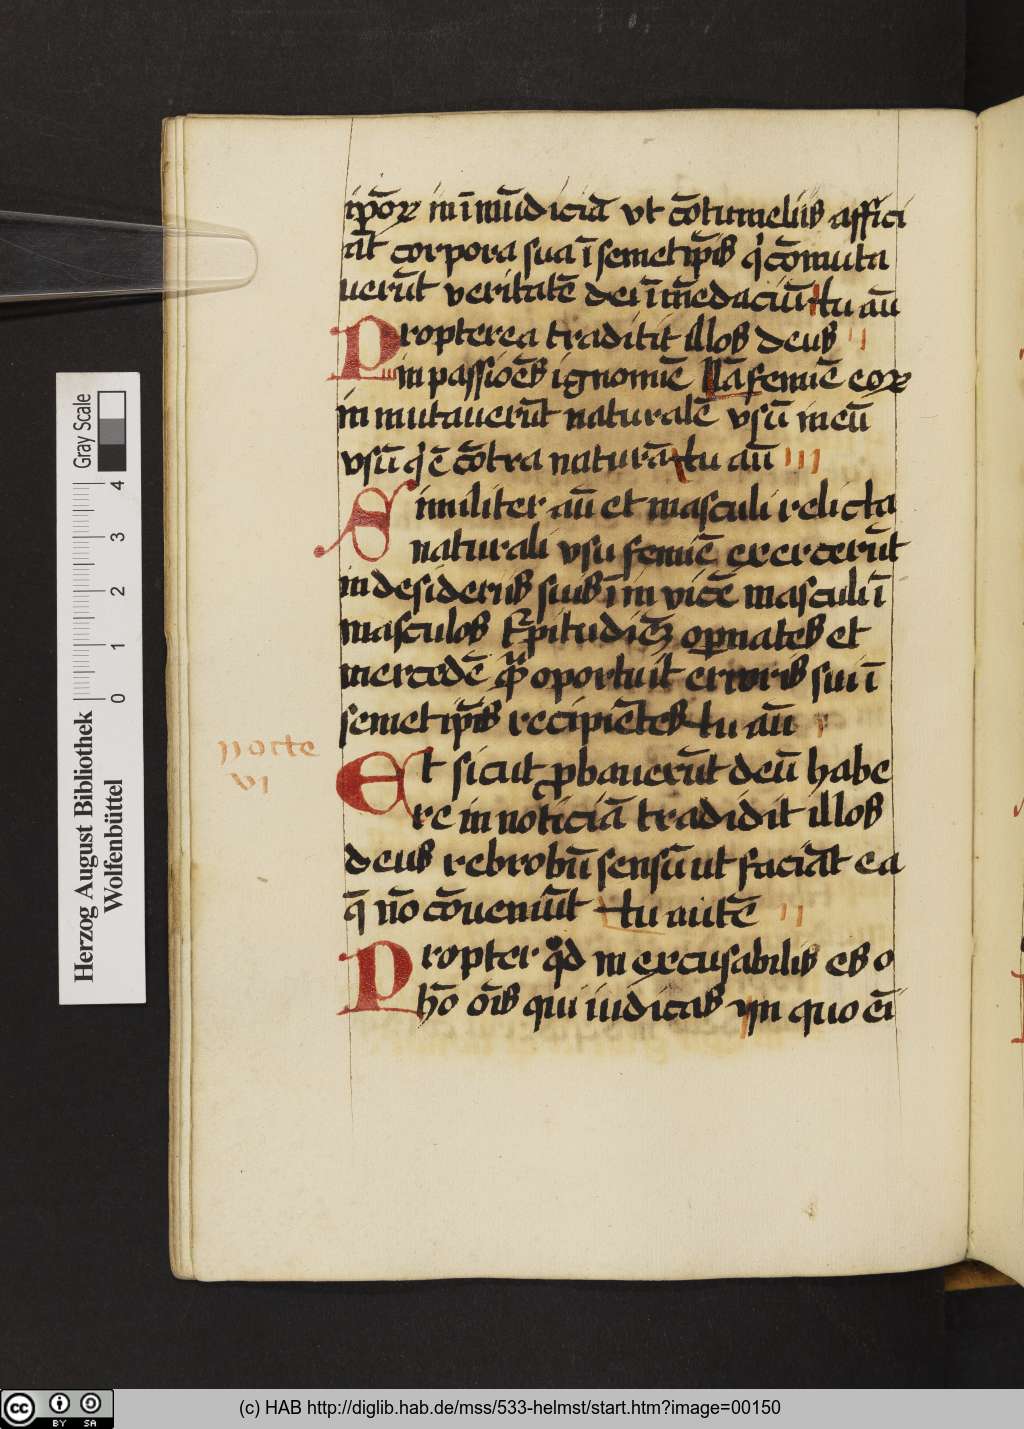 ip̄oꝝ in īmūdiciā vt cōtumeliis affici
āt corpora sua ī semetip̄is q̇ cōmuta
uerūt veritatē dei ī mēdaciū tu aū
Propterea traditit illos deus ii
in passioēs ignomiē Nā femiē eoꝝ
inmutauerūt naturalē vsū in eū
vsū q̇ ē cōtra naturā tu aū iii
Similiter aū et masculi relicta
naturali vsu femiē exercerūt
in desideriis suis ī in vicē masculi ī
masculos t᷑pitudiēꝫ oꝑnātes et
mercedē quā oportuit erroris sui ī
semet ip̄is recipiētes tu aū i
nocte
vi
Et sicut ꝓbauerūt deū habe
re in noticiā tradidit illos
deus rebrobū sensū ut faciāt ea
q̄ nō cōueniūt tu autē ii
Propter qd̄ inexcusabilis es o
hō oīs qui iudicas in quo ei̅
Herzog August Bibliothek
Wolfenbüttel
Gray Scale
0 1 2 3 4
cc BY SA
(c) HAB http://diglib.hab.de/mss/533-helmst/start.htm?image=00150